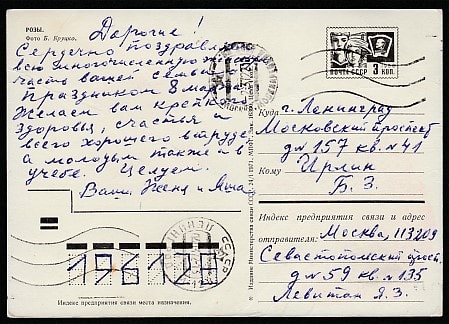 РОЗЫ.
Фото Б. Круцко.
Дорогие!
Сердечно поздравляем
всю многочисленную женскую
часть вашей семьи с
праздником 8 марта
Желаем вам крепкого
здоровья, счастья и
всего хорошего в труде
а молодым также и в
учебе. Целуем.
Ваши Женя и Яша.
ПОЧТА СССР 3 КОП.
Куда г. Ленинград
Московский проспект
д № 157 кв. № 41
Кому Ирлин
Б. З.
Индекс предприятия связи и адрес
отправителя: Москва, 113209
Севастопольский просп.
д № 59 кв. № 135
Левитан Я. З.
196128
Индекс предприятия связи места назначения.
© Издание Министерства связи СССР.
ЛЕНИНГРАД
СССР